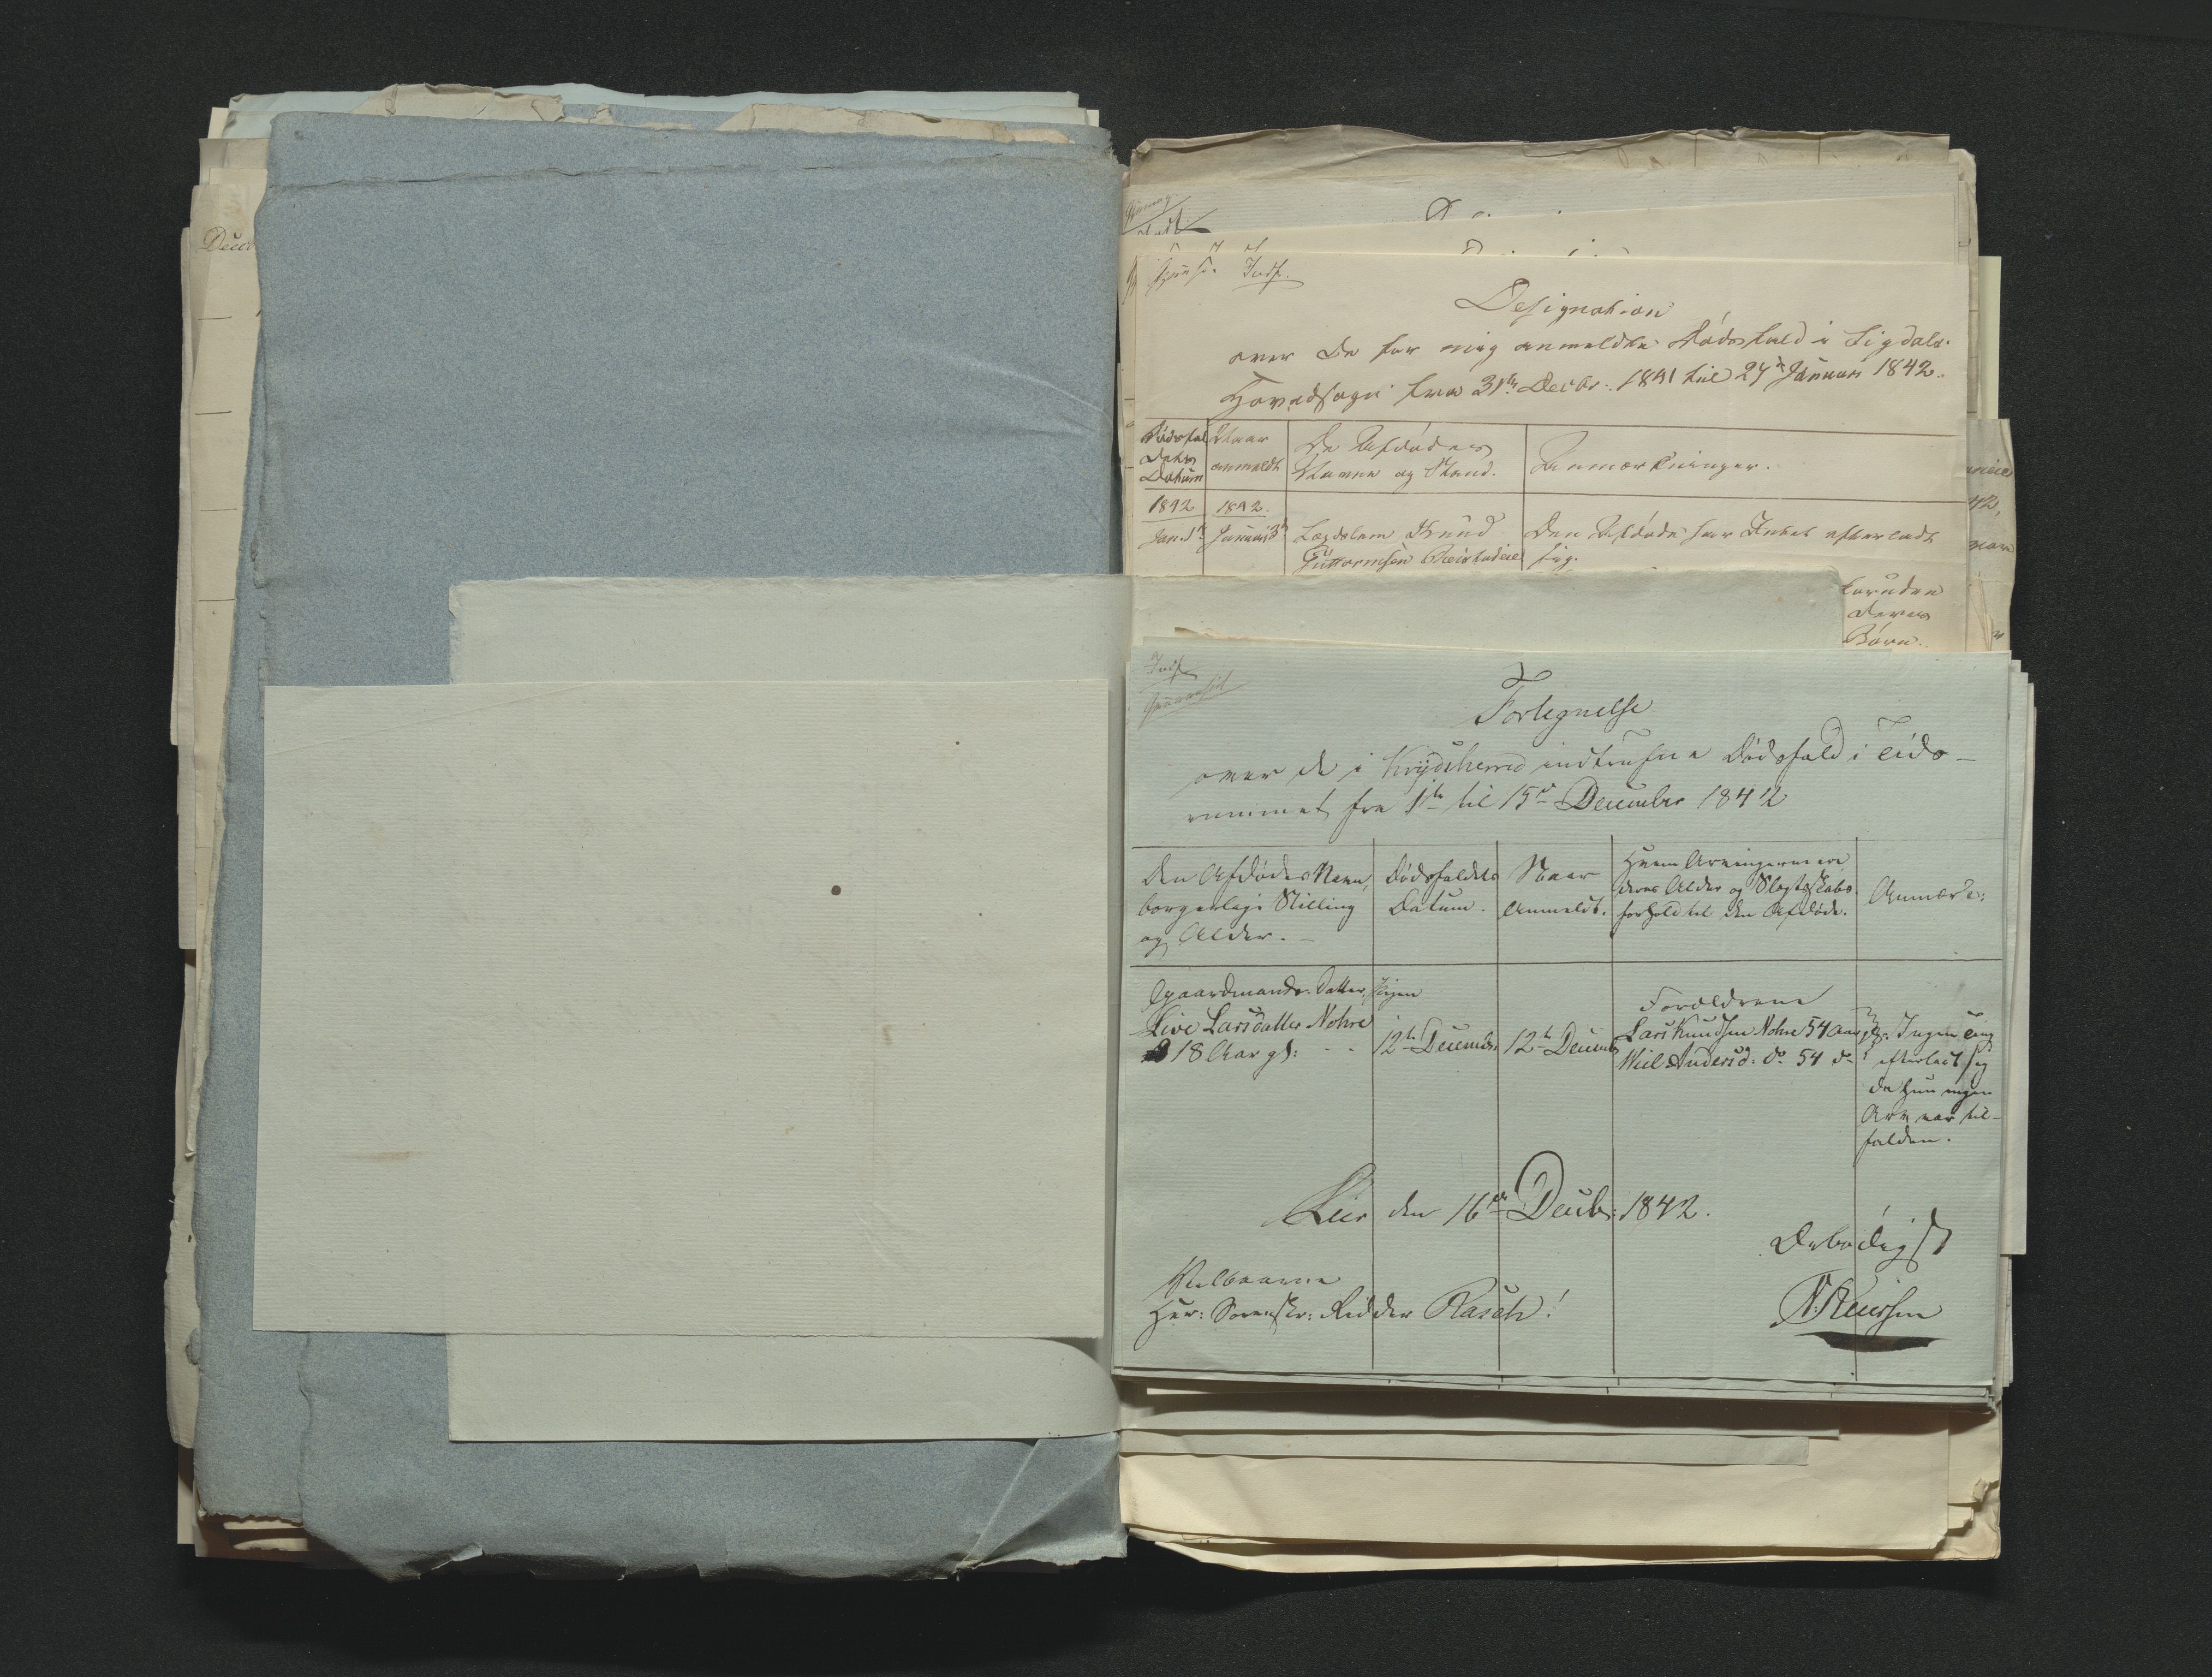 Decr
Designation
over de for mig anmeldte Dødsfald i Sigdals
Hovedsogn fra 31te Decbr: 1841 til 27de Januari 1842.
Dødsfal
dets
Datum
Naar
anmeldt
De Afdødes
Navne og Stand.
Anmærkninger.
1842
1842.
Jan. 1te
Januari 3de
Lægdslem Knud
Guttormsen
Den Afdøde har Intet efterladt
sig.
foruden
deres
Børn.
Indf.
Fortegnelse
over de i Krydsherred indtrufne Dødsfald i Tids-
rummet fra 1te til 15de December 1842
Den Afdødes Navn,
borgerlige Stilling
og Alder. -
Dødsfaldets
Datum.
Naar
Anmeldt.
Hvem Arvingerne ere
deres Alder og Slegtskabs
forhold til den Afdøde.
Anmærk:
Gaardmands Datter, Pigen
Live Larsdatter Nohre
18 Aar gl:
12te December
12te Decemb
Forældrene
Lars Knudsen Nohre 54 Aar gl:
Andersd: do 54 do
Ingen Ting
efterladt sig
da hun ingen
Arv var til-
falden.
Lier den 16de Decbr: 1842.
Ærbødigst
Velbaarne
Herr: Sorenskr: Ridder Rasch!